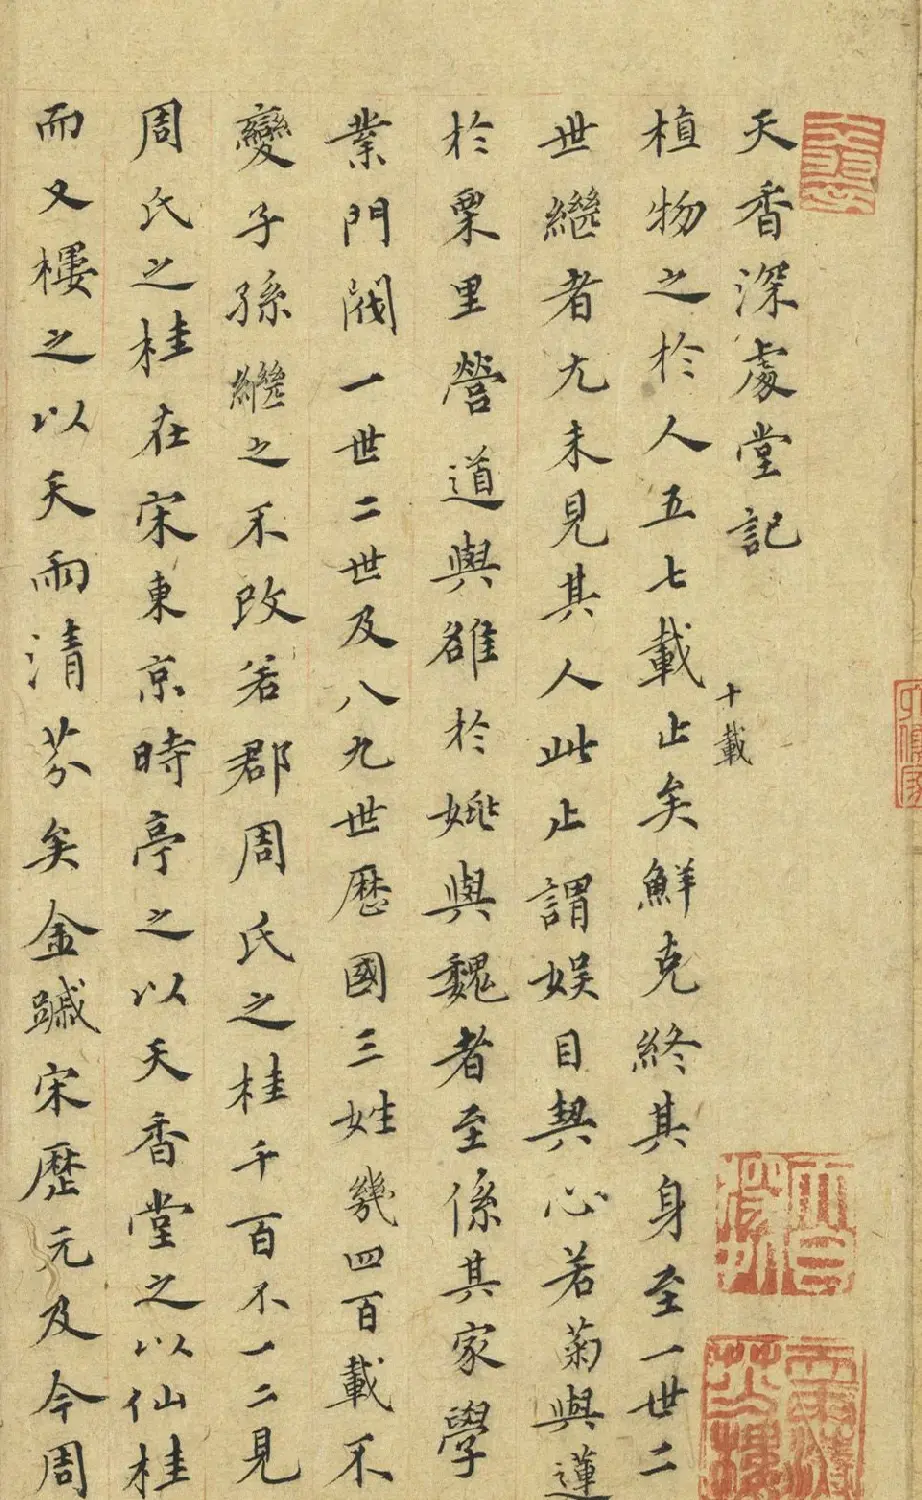 天香深處堂記
植物之於人五七載止矣鮮克終其身至一世二
十載
世繼者尤未見其人此止謂娛目契心若菊與蓮
於栗里營道與雒於姚與魏者至係其家學
業門閥一世二世及八九世歷國三姓幾四百載不
變子孫繼之不改若郡周氏之桂千百不一二見
周氏之桂在宋東京時亭之以天香堂之以仙桂
而又樓之以天雨清芬矣金䠞宋歷元及今周